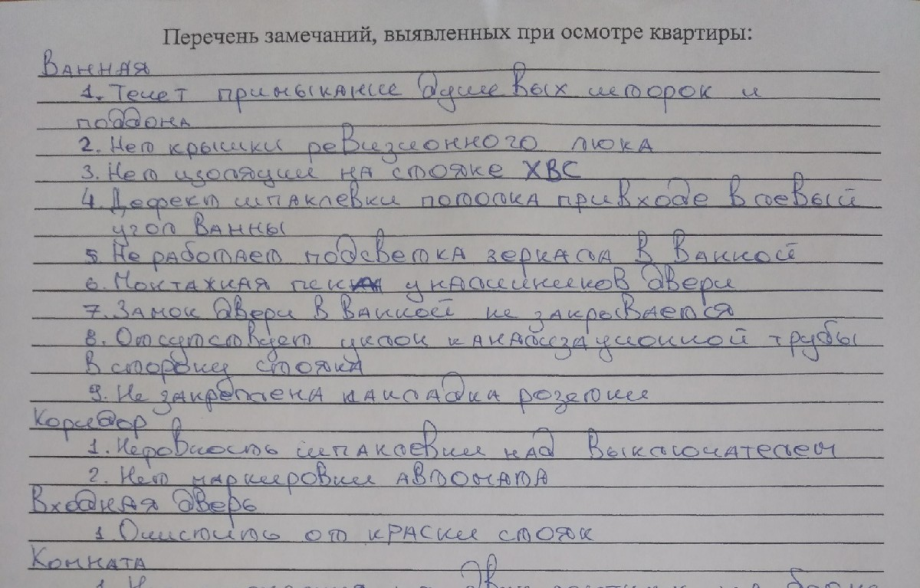 Перечень замечаний, выявленных при осмотре квартиры:
Ванная
1. Течет примыкание душевых шторок и
поддона
2. Нет крышки ревизионного люка
3. Нет изоляции на стояке ХВС
4. Дефект шпаклевки потолка при входе в левый
угол ванны
5. Не работает подсветка зеркала в ванной
6. Монтажная пена у наличников двери
7. Замок двери в ванной не закрывается
8. Отсутствует уклон канализационной трубы
в сторону стояка
9. Не закреплена накладка розетки
Коридор
1. Неровность шпаклевки над выключателем
2. Нет маркировки автомата
Входная дверь
1. Очистить от краски стояк
Комната